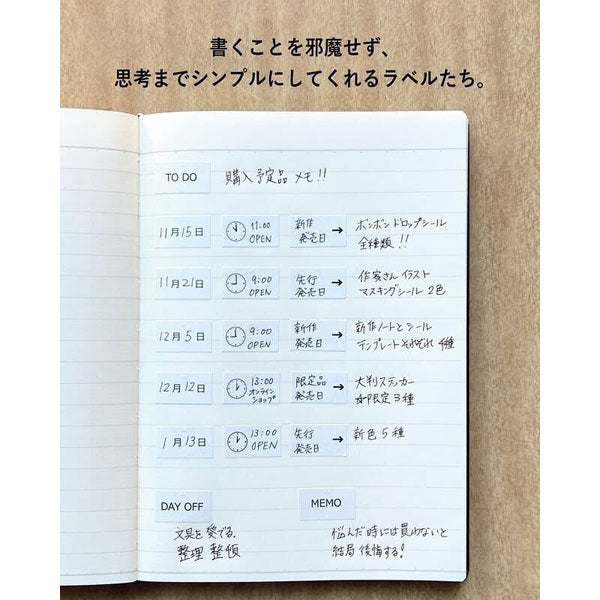 書くことを邪魔せず、
思考までシンプルにしてくれるラベルたち。
TO DO 購入予定品 メモ!!
11月15日 11:00 OPEN 新作発売日 → ボンボンドロップシール 全種類!!
11月21日 9:00 OPEN 先行発売日 → 作家さん イラスト マスキングシール 2色
12月5日 9:00 OPEN 新作発売日 → 新作ノートとシール テンプレート それぞれ 4種
12月12日 13:00 オンラインショップ 限定品発売日 → 大判ステッカー ☆限定3種
1月13日 13:00 OPEN 先行発売日 → 新色5種
DAY OFF
文具を愛でる。
整理 整頓
MEMO
悩んだ時には買わないと
結局後悔する!